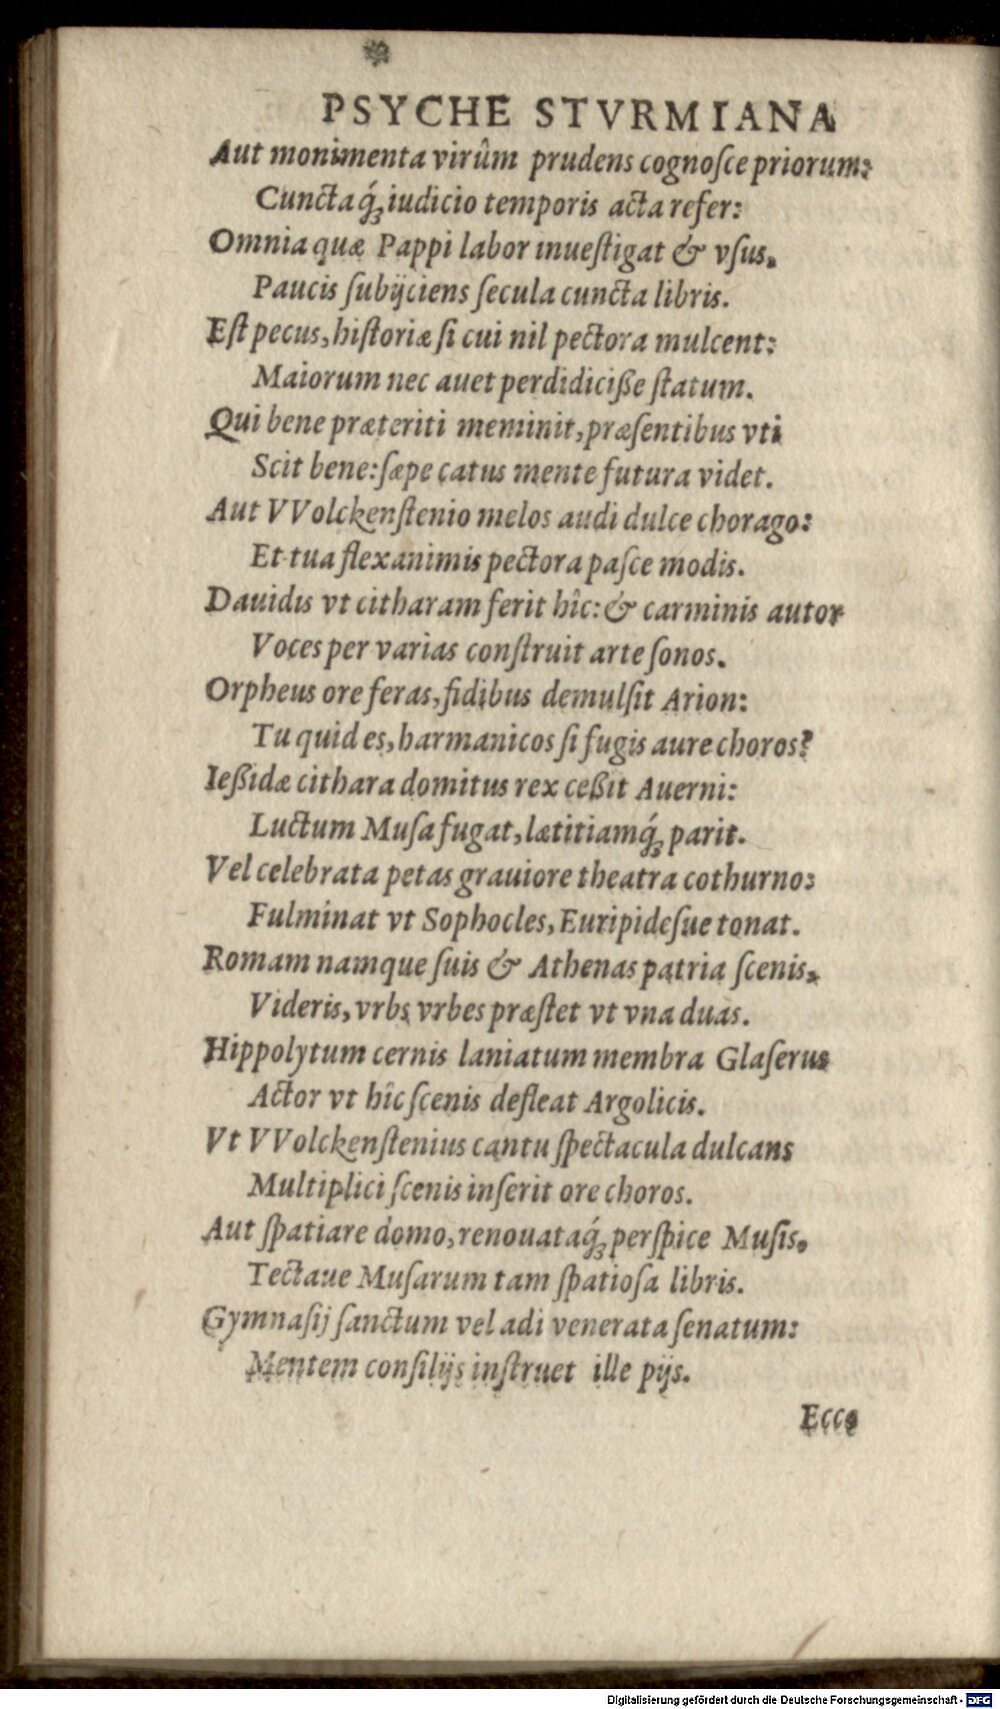 PSYCHE STVRMIANA
Aut monimenta virûm prudens cognoſce priorum:
Cunctaq́ꝫ iudicio temporis acta refer:
Omnia quæ Pappi labor inueſtigat & vſus.
Paucis ſubijciens ſecula cuncta libris.
Eſt pecus, hiſtoriæ ſi cui nil pectora mulcent:
Maiorum nec auet perdidiciße ſtatum.
Qui bene præteriti meminit, præſentibus vti
Scit bene: ſæpe catus mente futura videt.
Aut VVolckenſtenio melos audi dulce chorago:
Et tua flexanimis pectora paſce modis.
Dauidis vt citharam ferit hîc: & carminis autor
Voces per varias conſtruit arte ſonos.
Orpheus ore feras, fidibus demulſit Arion:
Tu quid es, harmanicos ſi fugis aure choros?
Ießidæ cithara domitus rex ceßit Auerni:
Luctum Muſa fugat, lætitiamq́ꝫ parit.
Vel celebrata petas grauiore theatra cothurno:
Fulminat vt Sophocles, Euripideſue tonat.
Romam namque ſuis & Athenas patria ſcenis.
Videris, vrbs vrbes præſtet vt vna duas.
Hippolytum cernis laniatum membra Glaſerus
Actor vt hîc ſcenis defleat Argolicis.
Vt VVolckenſtenius cantu ſpectacula dulcans
Multiplici ſcenis inſerit ore choros.
Aut ſpatiare domo, renouataq́ꝫ perſpice Muſis.
Tectaue Muſarum tam ſpatioſa libris.
Gymnaſij ſanctum vel adi venerata ſenatum:
Mentem conſilijs inſtruet ille pijs.
Ecce
Digitalisierung gefördert durch die Deutsche Forschungsgemeinschaft - DFG